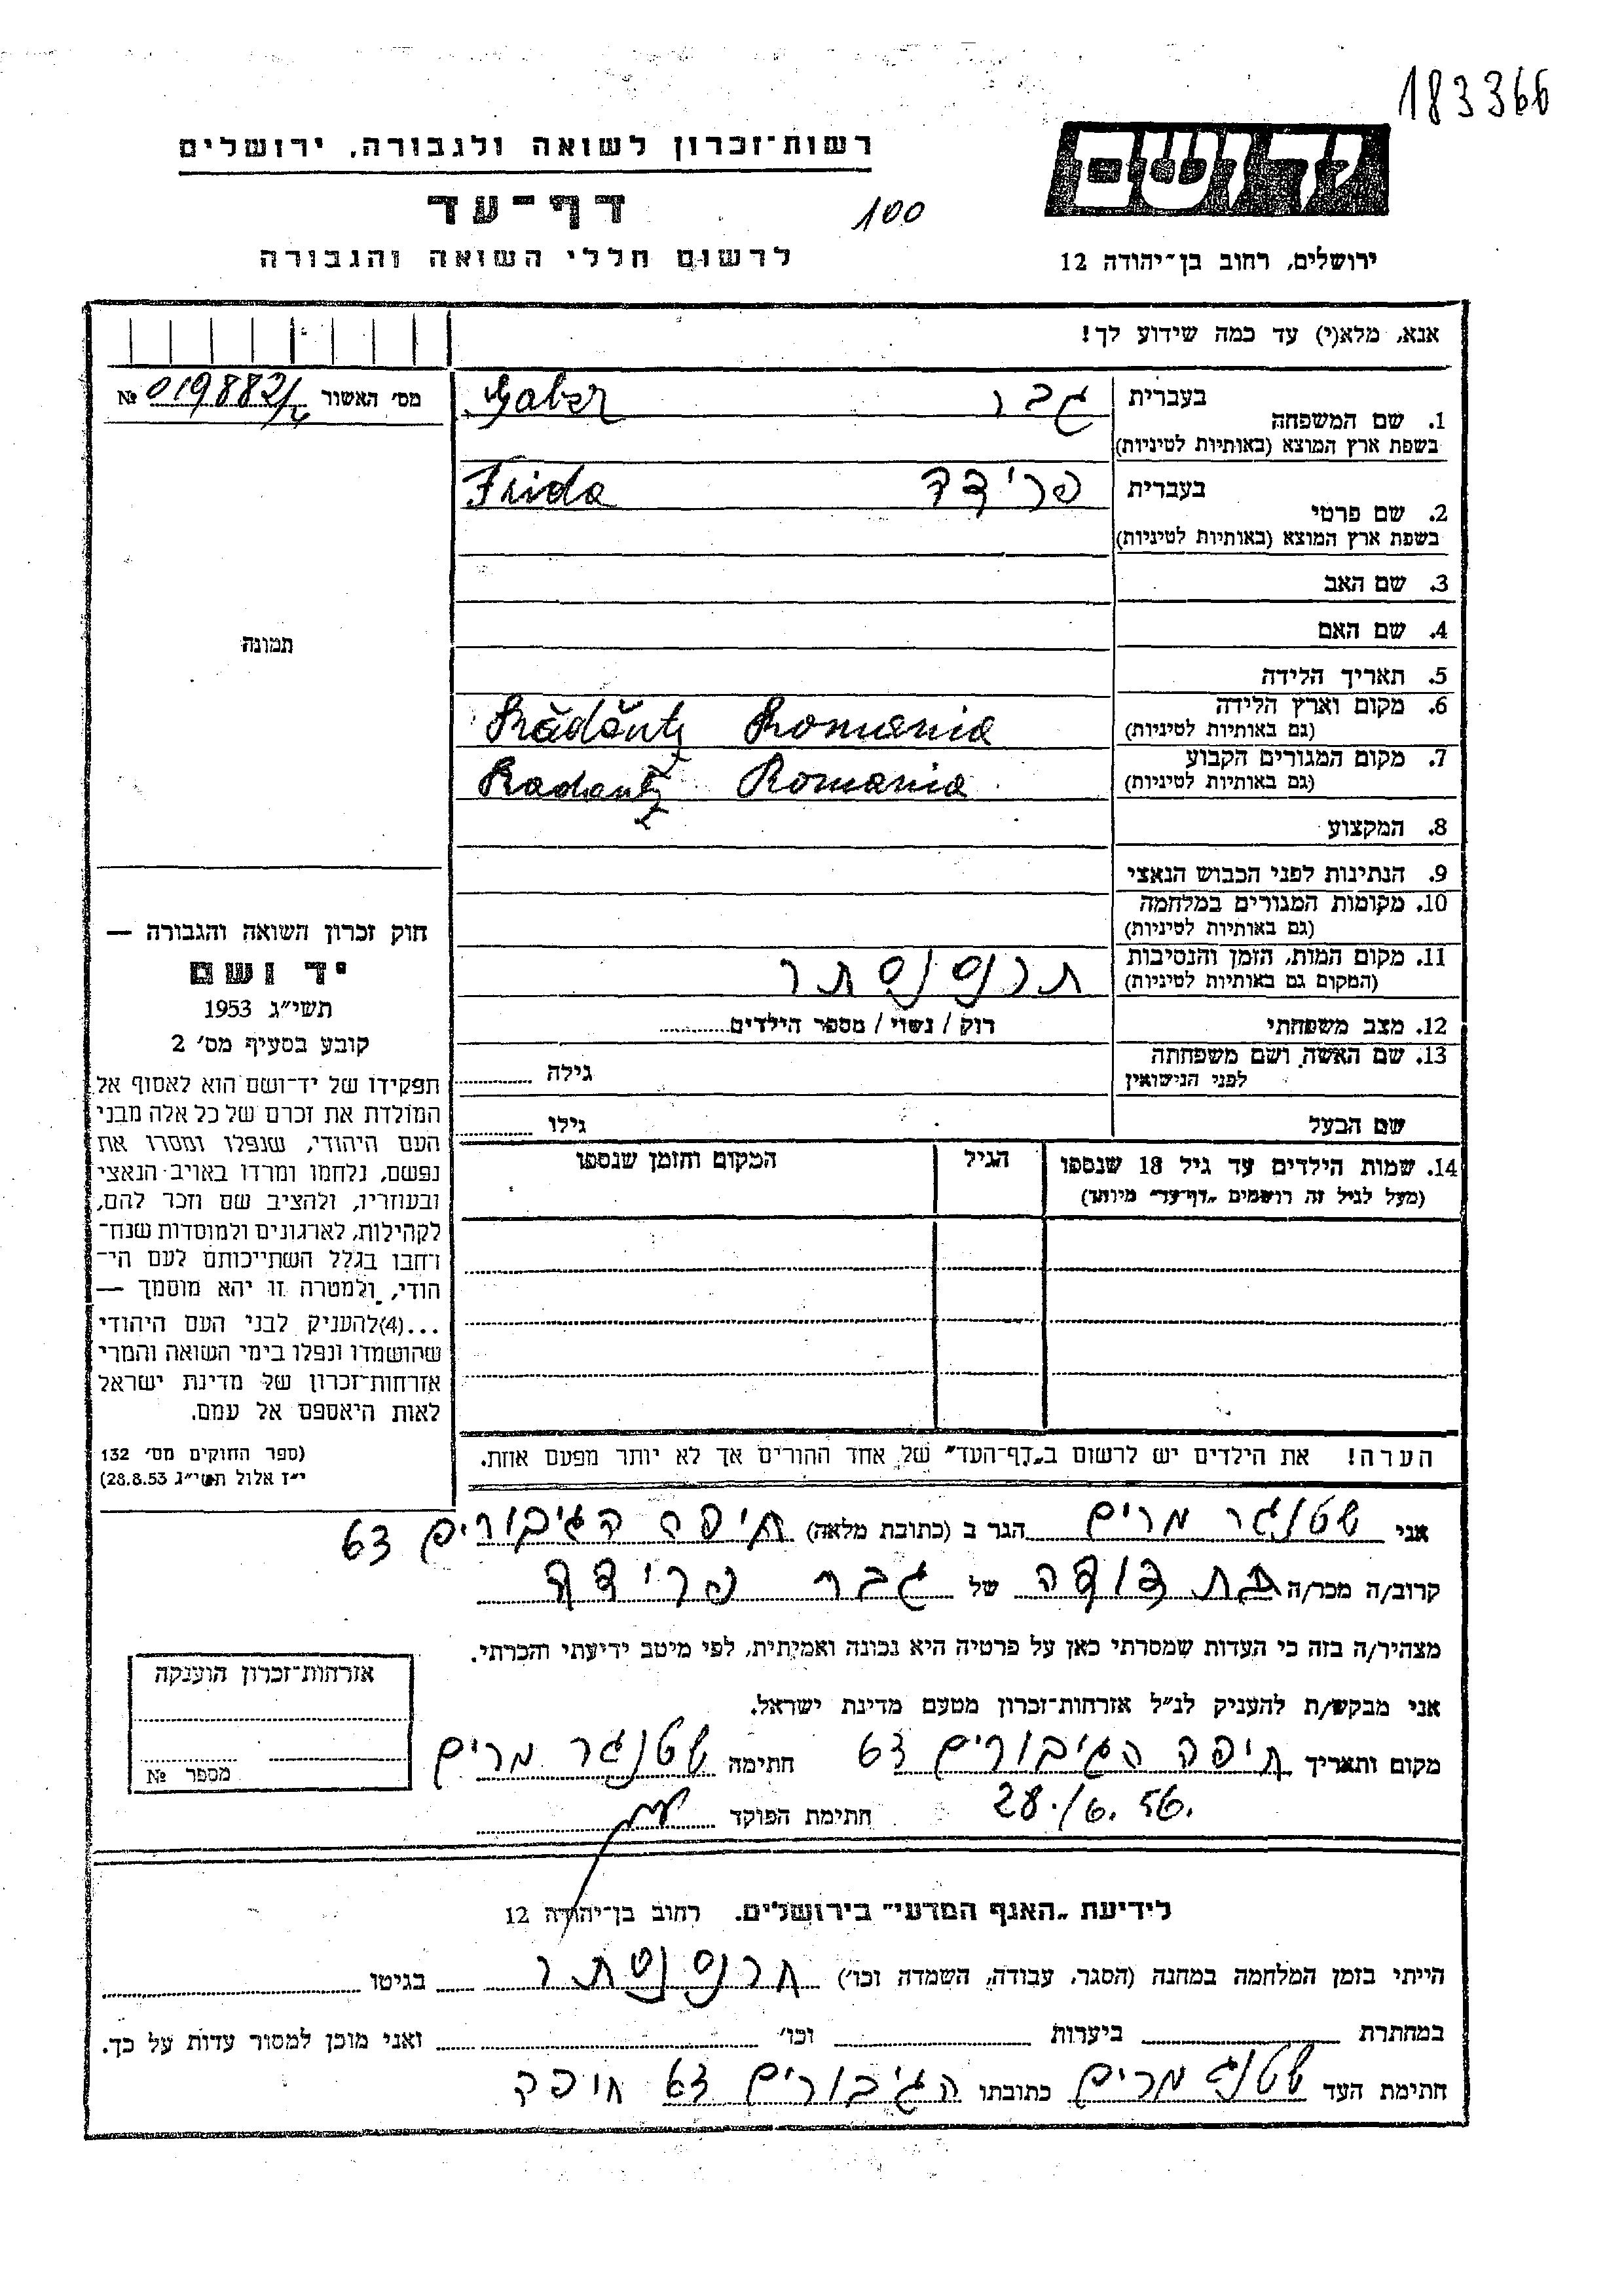 183366
יד ושם
רשות־זכרון לשואה ולגבורה, ירושלים
דף־עד
100
ירושלים, רחוב בן־יהודה 12
לרשום חללי השואה והגבורה
אנא, מלא(י) עד כמה שידוע לך!
מס׳ האשור № 019882/
1. שם המשפחה
בעברית גבר Gaber
בשפת ארץ המוצא (באותיות לטיניות)
2. שם פרטי
בעברית פרידה Frida
בשפת ארץ המוצא (באותיות לטיניות)
3. שם האב
4. שם האם
תמונה
5. תאריך הלידה
6. מקום וארץ הלידה
(גם באותיות לטיניות) Rădăutz Romania
7. מקום המגורים הקבוע
(גם באותיות לטיניות) Radautz Romania
8. המקצוע
9. הנתינות לפני הכבוש הנאצי
10. מקומות המגורים במלחמה
(גם באותיות לטיניות)
11. מקום המות, הזמן והנסיבות
(המקום גם באותיות לטיניות) תרנסנסתר
12. מצב משפחתי רוק / נשוי / מספר הילדים
13. שם האשה ושם משפחתה
לפני הנישואין גילה
שם הבעל גילו
14. שמות הילדים עד גיל 18 שנספו
(מעל לגיל זה רושמים „דף־עד״ מיוחד)
הגיל
המקום והזמן שנספו
חוק זכרון השואה והגבורה —
יד ושם
תשי״ג 1953
קובע בסעיף מס׳ 2
תפקידו של יד־ושם הוא לאסוף אל
המולדת את זכרם של כל אלה מבני
העם היהודי, שנפלו ומסרו את
נפשם, נלחמו ומרדו באויב הנאצי
ובעוזריו, ולהציב שם וזכר להם,
לקהילות, לארגונים ולמוסדות שנח־
רבו בגלל השתייכותם לעם הי־
הודי, ולמטרה זו יהא מוסמך —
...(4)להעניק לבני העם היהודי
שהושמדו ונפלו בימי השואה והמרי
אזרחות־זכרון של מדינת ישראל
לאות היאספם אל עמם.
(ספר החוקים מס׳ 132
י״ז אלול תשי״ג 28.8.53)
הערה! את הילדים יש לרשום ב„דף־העד״ של אחד ההורים אך לא יותר מפעם אחת.
אני שטנגר מרים הגר ב (כתובת מלאה) חיפה הגיבורים 63
קרוב/ה מכר/ה בת דודה של גבר פרידה
מצהיר/ה בזה כי העדות שמסרתי כאן על פרטיה היא נכונה ואמיתית, לפי מיטב ידיעתי והכרתי.
אני מבקש/ת להעניק לנ״ל אזרחות־זכרון מטעם מדינת ישראל.
מקום ותאריך חיפה הגיבורים 63 חתימה שטנגר מרים
28./6.56.
חתימת הפוקד
אזרחות־זכרון הוענקה
מספר №
לידיעת „האגף המדעי״ בירושלים. רחוב בן־יהודה 12
הייתי בזמן המלחמה במחנה (הסגר, עבודה, השמדה וכו׳) תרנסנסתר בגיטו
במחתרת ביערות וכו׳ ואני מוכן למסור עדות על כך.
חתימת העד שטנגר מרים כתובתו הגיבורים 63 חיפה